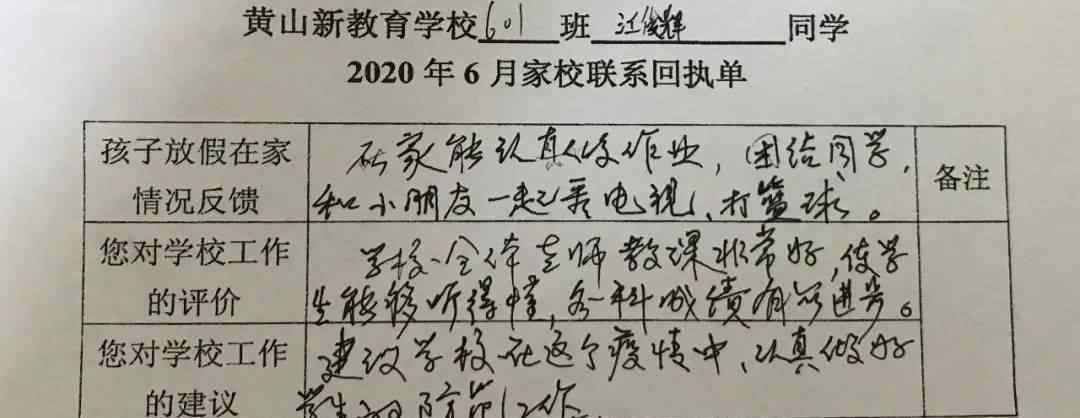 黄山新教育学校601班 江俊辉 同学
2020年6月家校联系回执单
孩子放假在家情况反馈
在家能认真做作业，团结同学，
和小朋友一起看电视、打篮球。
备注
您对学校工作的评价
学校全体老师教课非常好，使学
生能够听得懂，各科成绩有所进步。
您对学校工作的建议
建议学校在这个疫情中，认真做好
学生的防范工作